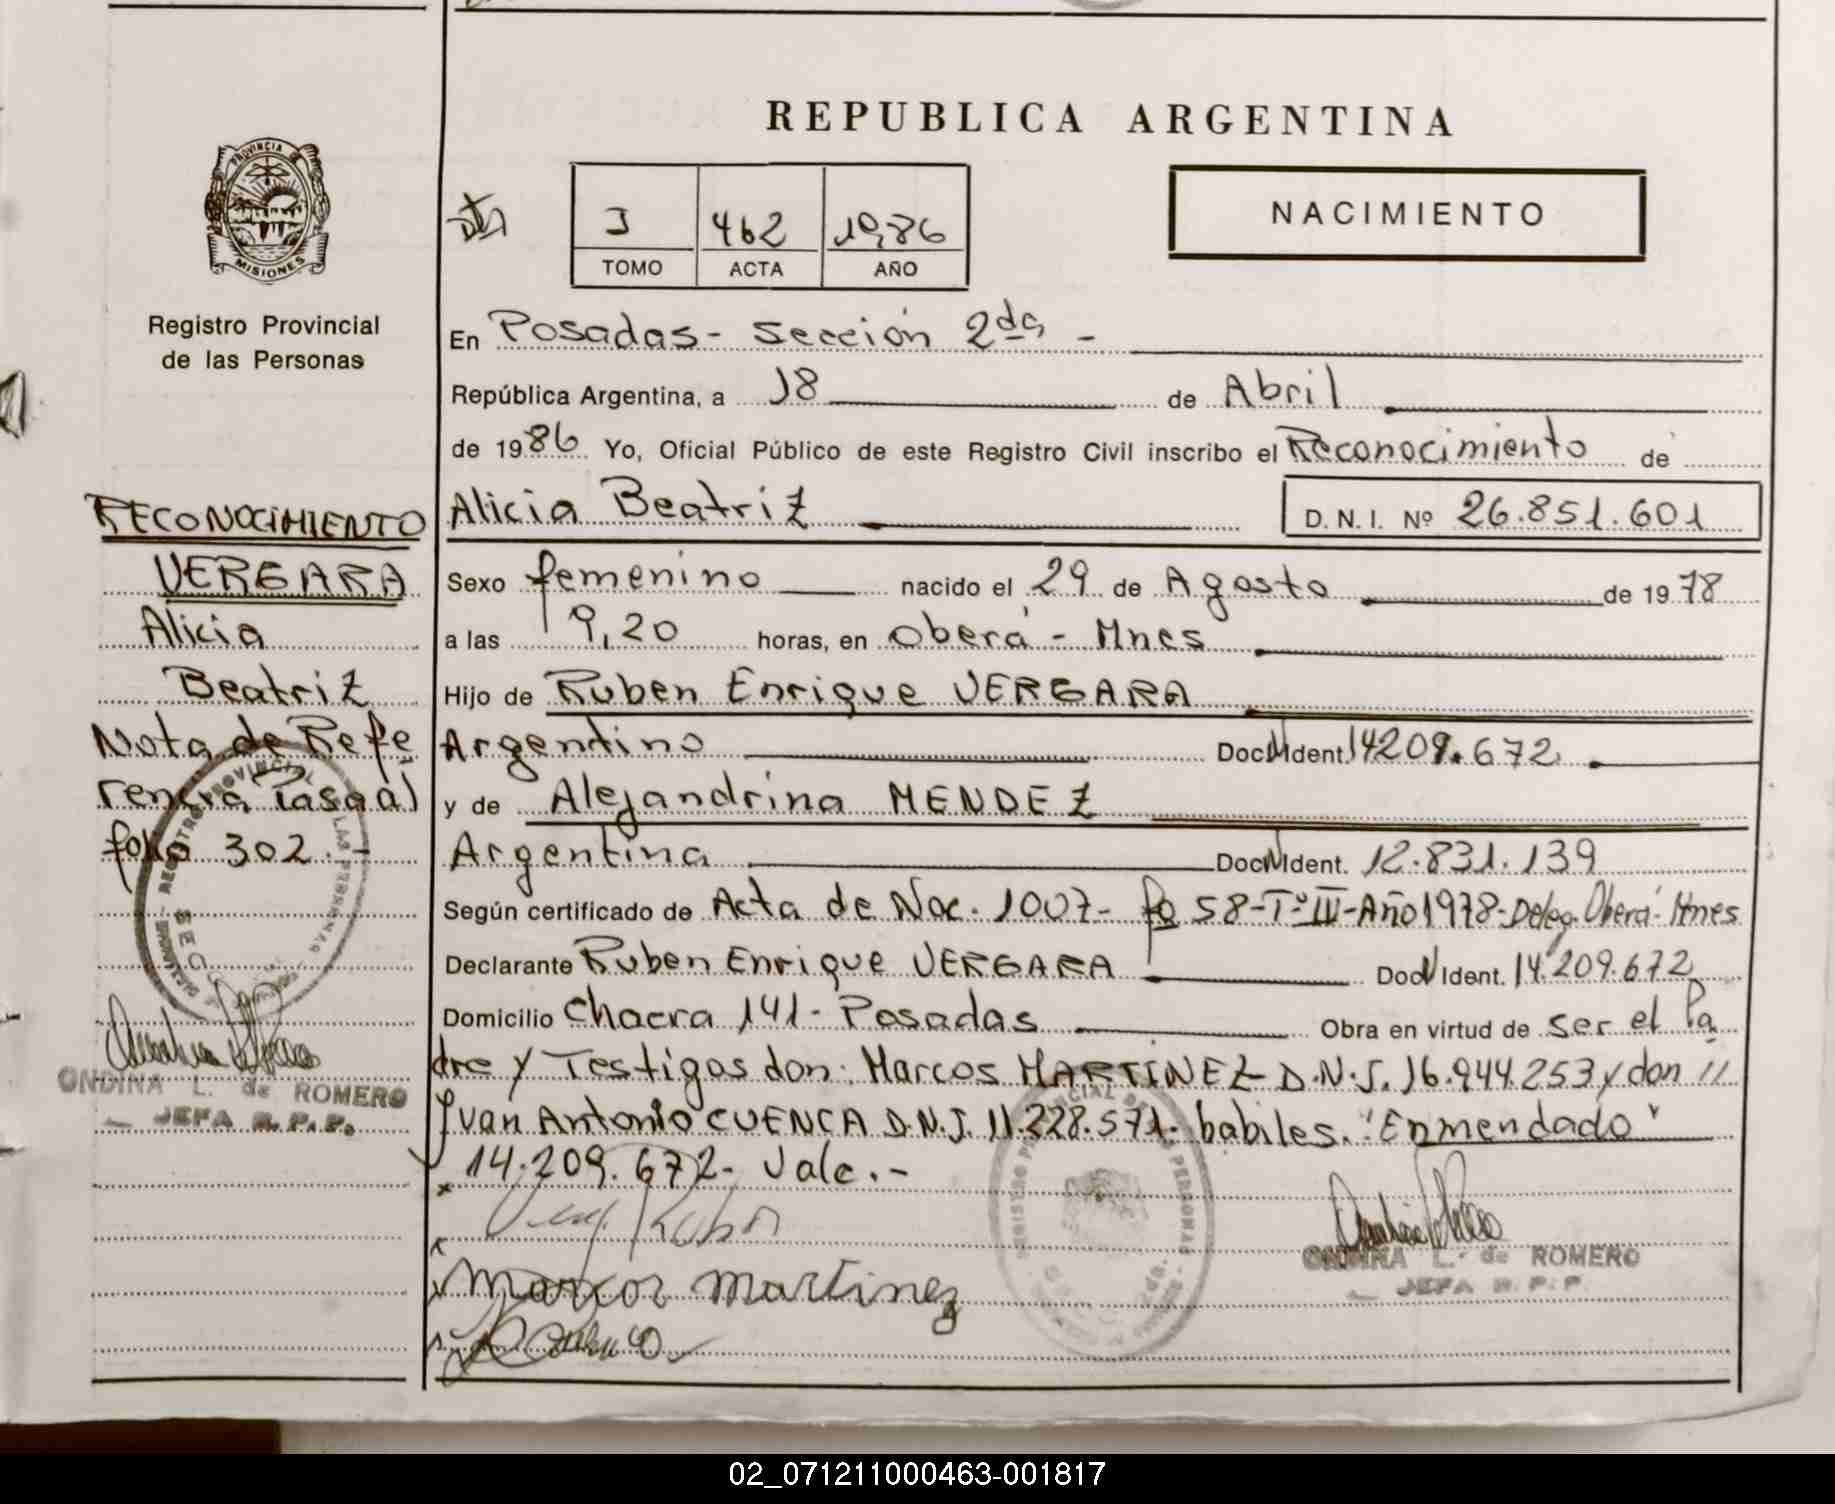 REPUBLICA ARGENTINA
PROVINCIA DE
MISIONES
Registro Provincial
de las Personas
I 462 1986
TOMO ACTA AÑO
NACIMIENTO
En Posadas - Sección 2da -
República Argentina, a 18 de Abril
de 1986 Yo, Oficial Público de este Registro Civil inscribo el Reconocimiento de
Alicia Beatriz D.N.I. Nº 26.851.601
Sexo femenino nacido el 29 de Agosto de 1978
a las 9,20 horas, en Oberá - Mnes
Hijo de Ruben Enrique VERGARA
Argentino Doc N Ident. 14209.672
y de Alejandrina MENDEZ
Argentina Doc N Ident. 12.831.139
Según certificado de Acta de Nac. 1007- fo 58-Tº IV-Año 1978-Deleg. Oberá-Mnes
Declarante Ruben Enrique VERGARA Doc N Ident. 14.209.672
Domicilio Chacra 141 - Posadas Obra en virtud de ser el Pa
dre y Testigos don: Marcos MARTINEZ D.N.I. 16.944.253 y don //
Ivan Antonio CUENCA D.N.I. 11.228.571- habiles. "Enmendado"
14.209.672- Vale.-
Marcos Martinez
ONDINA L. de ROMERO
JEFA R.P.P.
RECONOCIMIENTO
VERGARA
Alicia
Beatriz
Nota de Refe
rencia Pasa al
folio 302.-
REGISTRO PROVINCIAL DE LAS PERSONAS
ONDINA L. de ROMERO
JEFA R.P.P.
REGISTRO PROVINCIAL DE LAS PERSONAS
02_071211000463-001817